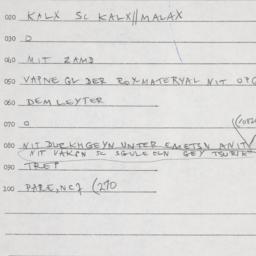 020 KALX SC KALX//MALAX
030 0
040 MIT ZAMD
050 VAPNE GL DER ROXMATERYAL NIT OPG
060 DEMLEYTER
070 0
080 NIT DURKHGEYN UNTER EMETSN ANIT
NIT VAKPN SC SGULE GEY TSURIK
090 TREP
200 PARE,NCJ (270